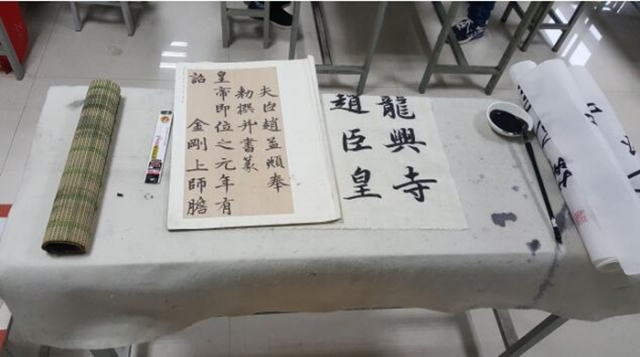 夫臣趙孟頫奉
勑撰并書篆
皇帝即位之元年有
詔金剛上師膽
龍興寺
趙臣皇